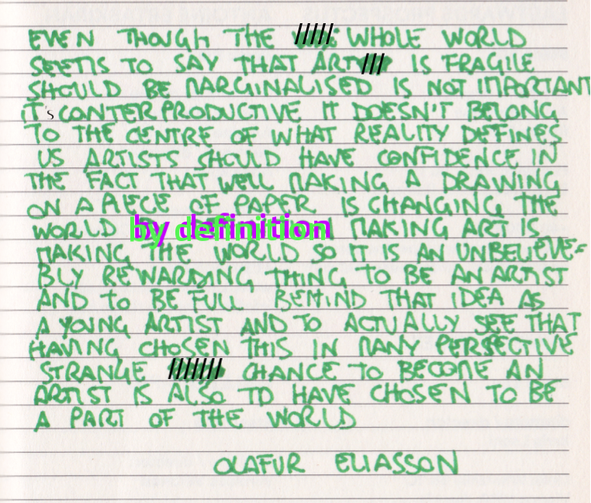 EVEN THOUGH THE WHOLE WORLD
SEEMS TO SAY THAT ART IS FRAGILE
SHOULD BE MARGINALISED IS NOT IMPORTANT
IT's CONTERPRODUCTIVE IT DOESN'T BELONG
TO THE CENTRE OF WHAT REALITY DEFINES
US ARTISTS SHOULD HAVE CONFIDENCE IN
THE FACT THAT WELL MAKING A DRAWING
ON A PIECE OF PAPER IS CHANGING THE
WORLD by definition MAKING ART IS
MAKING THE WORLD SO IT IS AN UNBELIEVE=
BLY REWARDING THING TO BE AN ARTIST
AND TO BE FULL BEHIND THAT IDEA AS
A YOUNG ARTIST AND TO ACTUALLY SEE THAT
HAVING CHOSEN THIS IN MANY PERSECTIVE
STRANGE CHANCE TO BECOME AN
ARTIST IS ALSO TO HAVE CHOSEN TO BE
A PART OF THE WORLD
OLAFUR ELIASSON